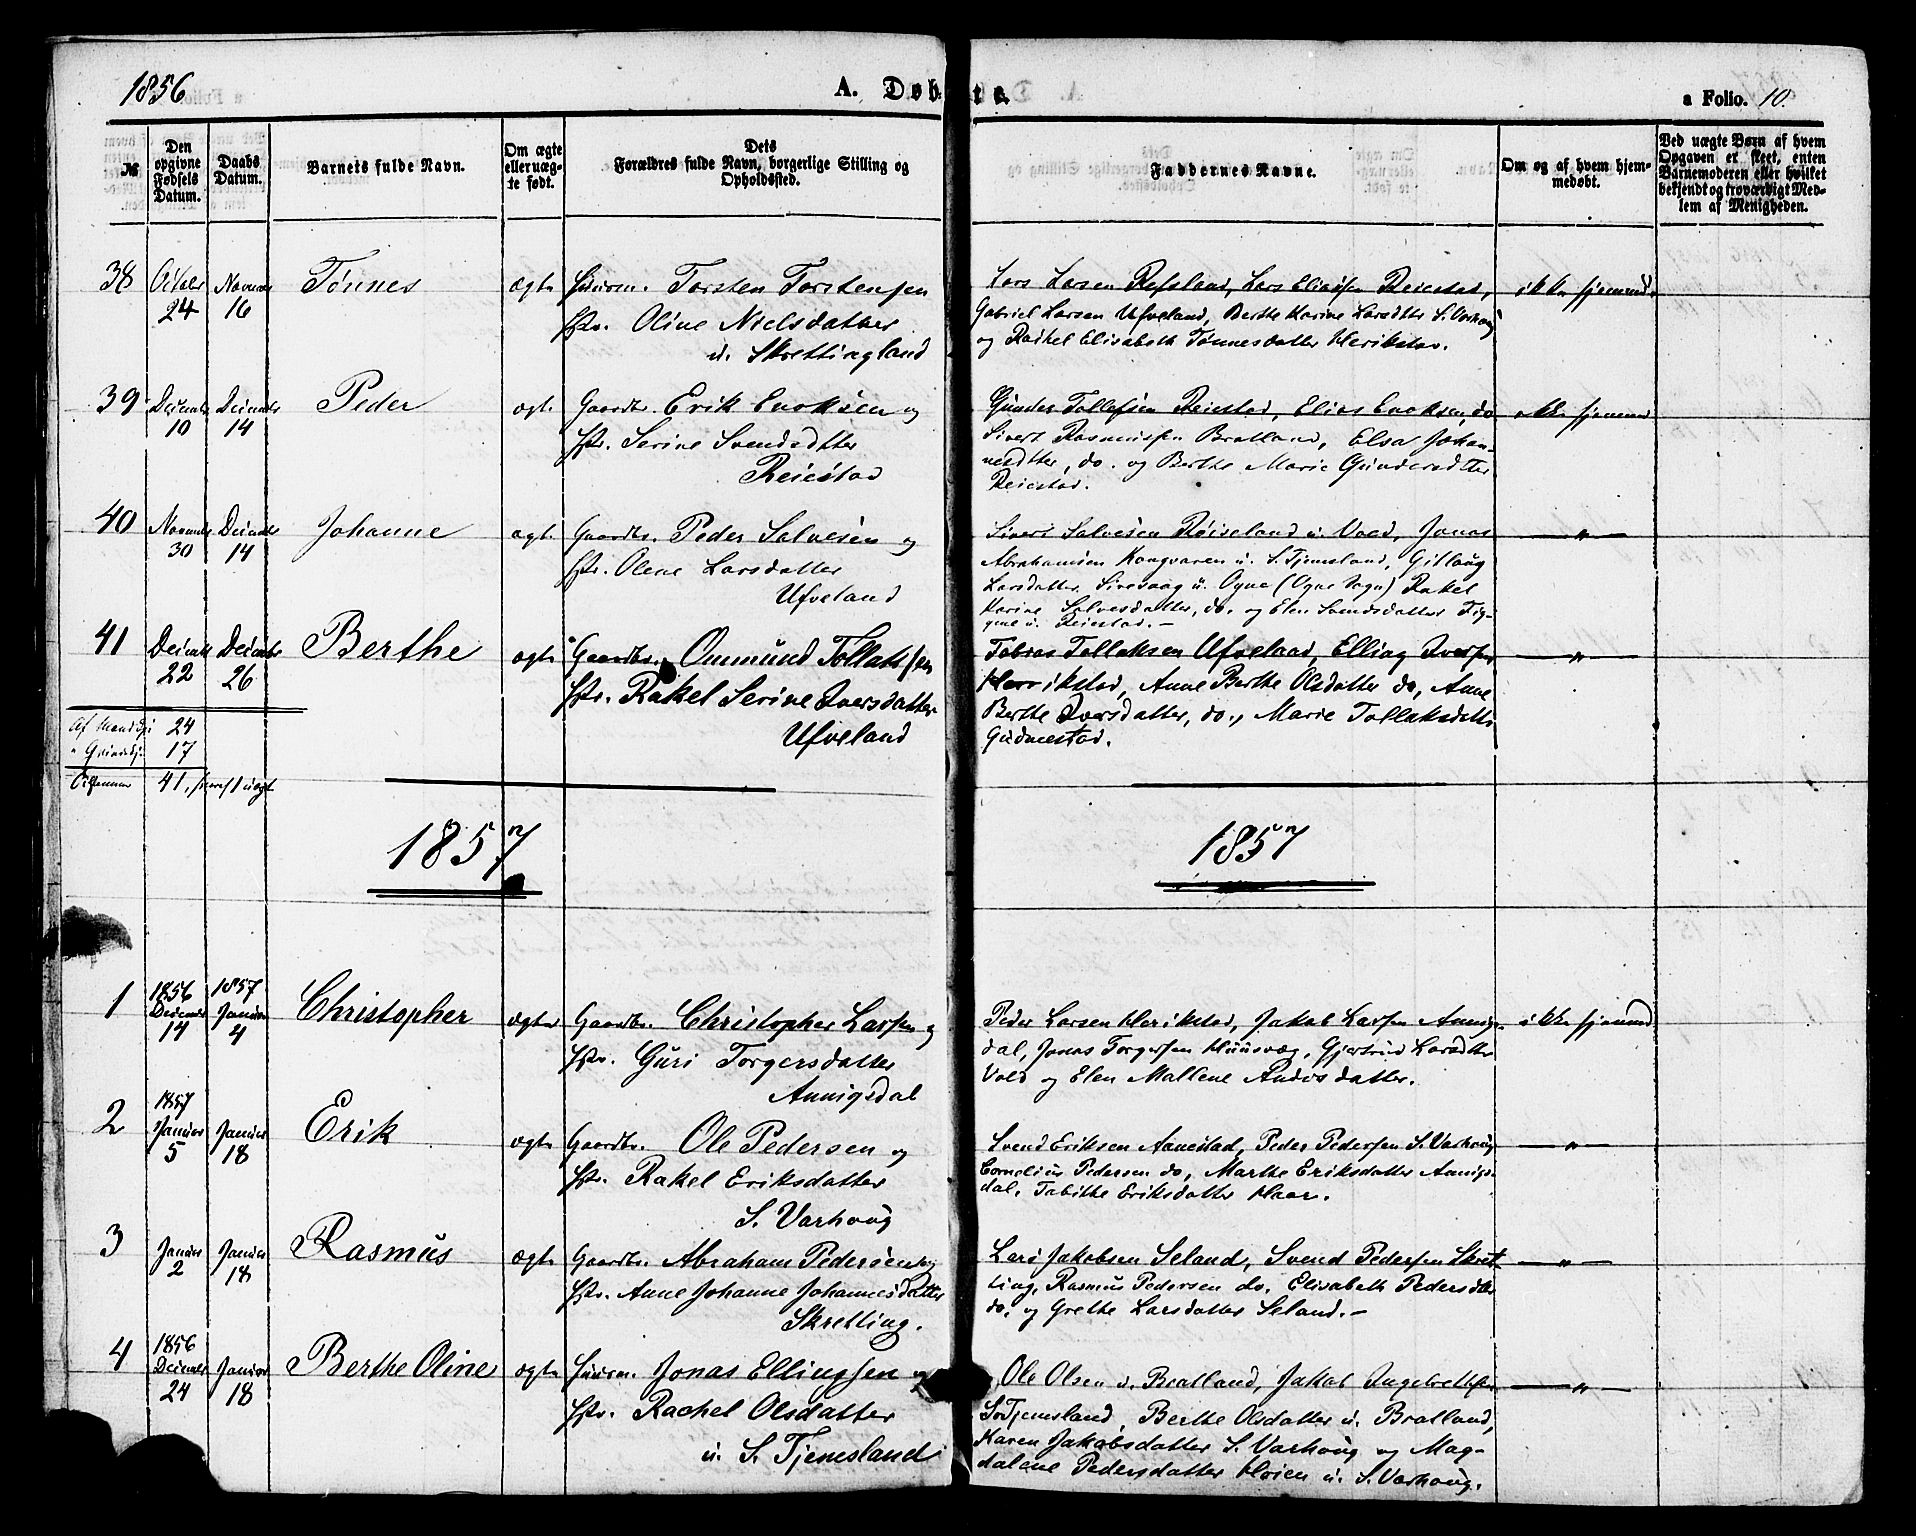 1856
A. Døbte.
a Folio. 10.
№
Den opgivne Fødsels Datum.
Daabs Datum.
Barnets fulde Navn.
Om ægte eller uægte født.
Dets Forældres fulde Navn, borgerlige Stilling og Opholdssted.
Faddernes Navne.
Om og af hvem hjemmedøbt.
Ved uægte Børn af hvem Opgaven er skeet, enten Barnemoderen eller hvilket bekjendt og troværdigt Medlem af Menigheden.
38
24
16
Tønnes
ægte
Huusm. Torsten Torstensen
Hstr. Oline Nielsdatter
u. Skrettingland
Lars Larsen Refsland, Lars Eliassen Reiestad,
Gabriel Larsen Ufveland, Berthe Karine Larsdtr S. Varhoug
og Rachel Elisabeth Tønnesdatter Herikstad.
ikke hjemmed.
39
10
14
Peder
ægte
Gaardbr. Erik Enoksen og
Hstr. Serine Svendsdtter
Reiestad
Gunder Tollefsen Reiestad, Elias Enoksen, do
Sivert Rasmussen Bratland, Elsa Johan-
nesdtter, do. og Berthe Marie Gundersdtter
Reiestad.
ikke hjemmed
40
30
14
Johanne
ægte
Gaardbr. Peder Salvesen og
Hstr. Olene Larsdatter
Ufveland
Sivert Salvesen Røiseland u. Vold, Jonas
Abrahamsen Kongvaren u. S. Tjemsland, Gitlaug
Larsdatter Sirevaag u. Ogne (Ogne Sogn) Rakel
Karine Salvesdatter, do. og Elen Svendsdatter
u. Reiestad. —
— " —
41
22
26
Berthe
ægte
Gaardbr. Ommund Tollaksen
Hstr. Rakel Serine Iversdatter
Ufveland
Tobias Tollaksen Ufveland, Elling Iversen
Herrikstad, Anne Berthe Olsdatter do, Anne
Berthe Iversdatter, do., Marie Tollaksdatter
Gudmestad.
— " —
Af Mandkj: 24
" Qvindekj: 17
Tilsammen 41, hvoraf 1 uægte
1857
1857
1
1856
14
1857
4
Christopher
ægte
Gaardbr. Christopher Larsen og
Hstr. Guri Torgersdatter
Aunigsdal
Peder Larsen Herikstad, Jakob Larsen Aunigs-
dal, Jonas Torgersen Huusvæg, Gjertrud Larsdtter
Vold og Elen Mallene Andersdatter.
ikke hjemmed
2
1857
Januar
5
Januar
18
Erik
ægte
Gaardbr. Ole Pedersen og
Hstr. Rakel Eriksdatter
S. Varhoug
Svend Eriksen Aanestad, Peder Pedersen S. Varhoug
Cornelius Pedersen do, Marthe Eriksdatter Aunigs-
dal, Tabithe Eriksdatter Haar.
— " —
3
Januar
2
Januar
18
Rasmus
ægte
Gaardbr. Abraham Pedersen og
Hstr. Anne Johanne Johannesdatter
Skretting.
Lars Jakobsen Seland, Svend Pedersen Skret-
ting, Rasmus Pedersen do. Elisabeth Pedersdtter
do. og Grethe Larsdatter Seland. —
— " —
4
1856
24
Januar
18
Berthe Oline
ægte
Huusm. Jonas Ellingsen og
Hstr. Rachel Olsdatter
u. S. Tjemsland
Ole Olsen u. Bratland, Jakob Ingebretsen
S. Tjemsland, Berthe Olsdatter u. Bratland,
Karen Jakobsdatter S. Varhoug og Mag-
dalene Pedersdatter Høien u. S. Varhoug.
— " —